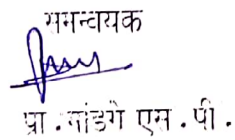 समन्वयक
प्रा.मांडगे एस.पी.